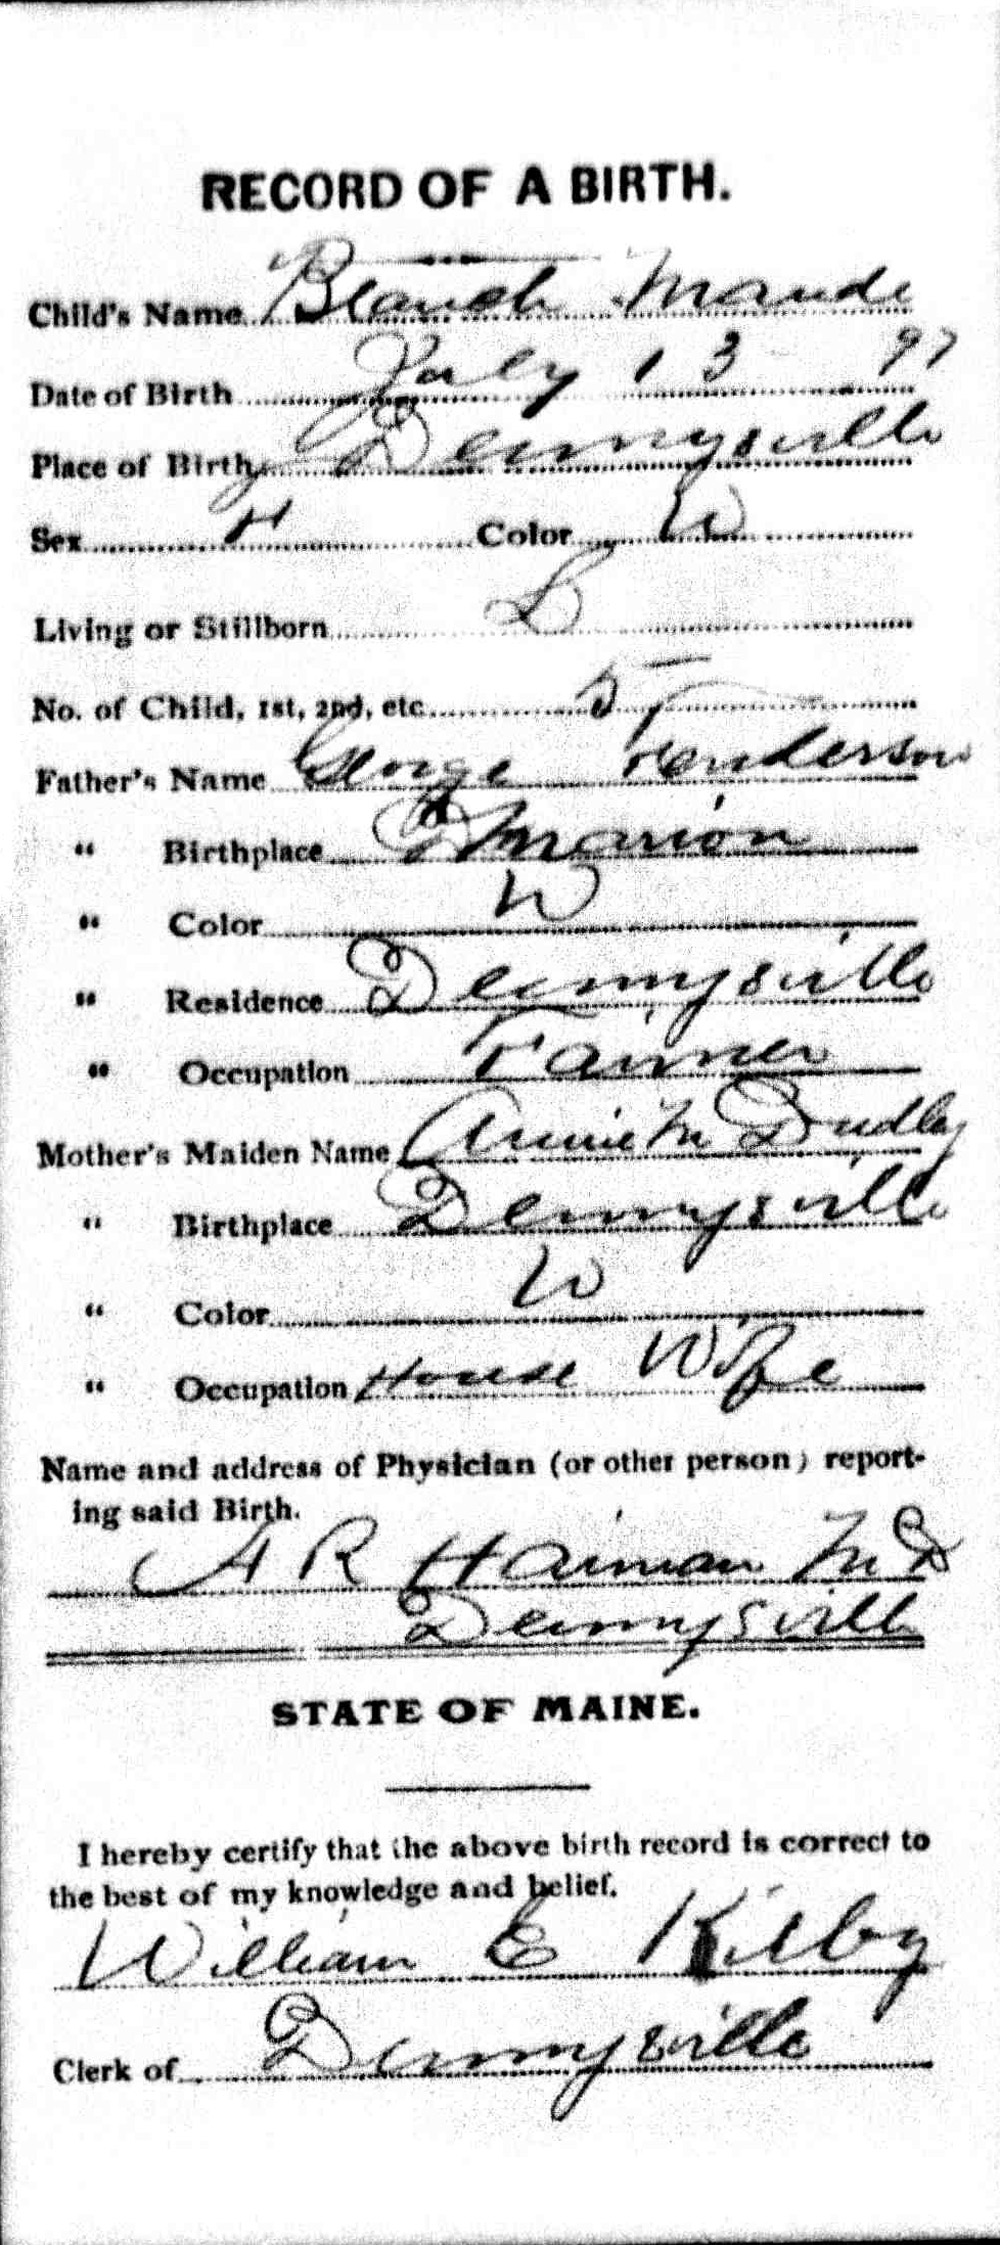 RECORD OF A BIRTH.
Child's Name Blanch Maude
Date of Birth July 13 97
Place of Birth Dennysville
Sex F Color W
Living or Stillborn L
No. of Child, 1st, 2nd, etc. 5
Father's Name George Henderson
" Birthplace Marion
" Color W
" Residence Dennysville
" Occupation Farmer
Mother's Maiden Name Annie M Dudley
" Birthplace Dennysville
" Color W
" Occupation House Wife
Name and address of Physician (or other person) report-
ing said Birth.
A R M D
Dennysville
STATE OF MAINE.
I hereby certify that the above birth record is correct to
the best of my knowledge and belief.
William E Kilby
Clerk of Dennysville